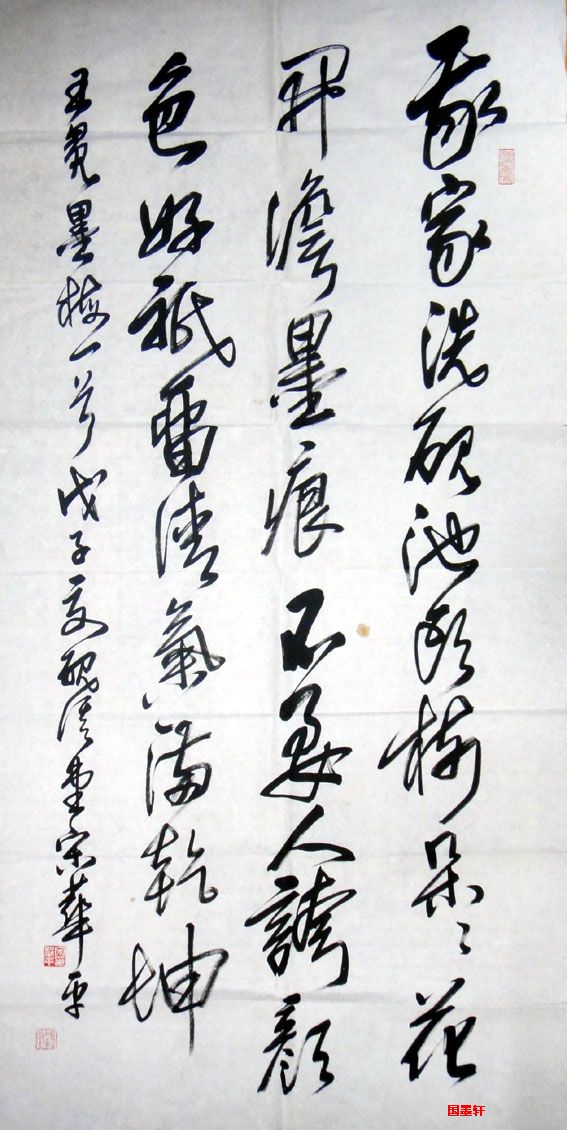 我家洗硯池頭樹朵々花
開澹墨痕不要人誇顏
色好祇留清氣滿乾坤
王冕墨梅一首戊子夏硯清堂宋華平
国墨轩